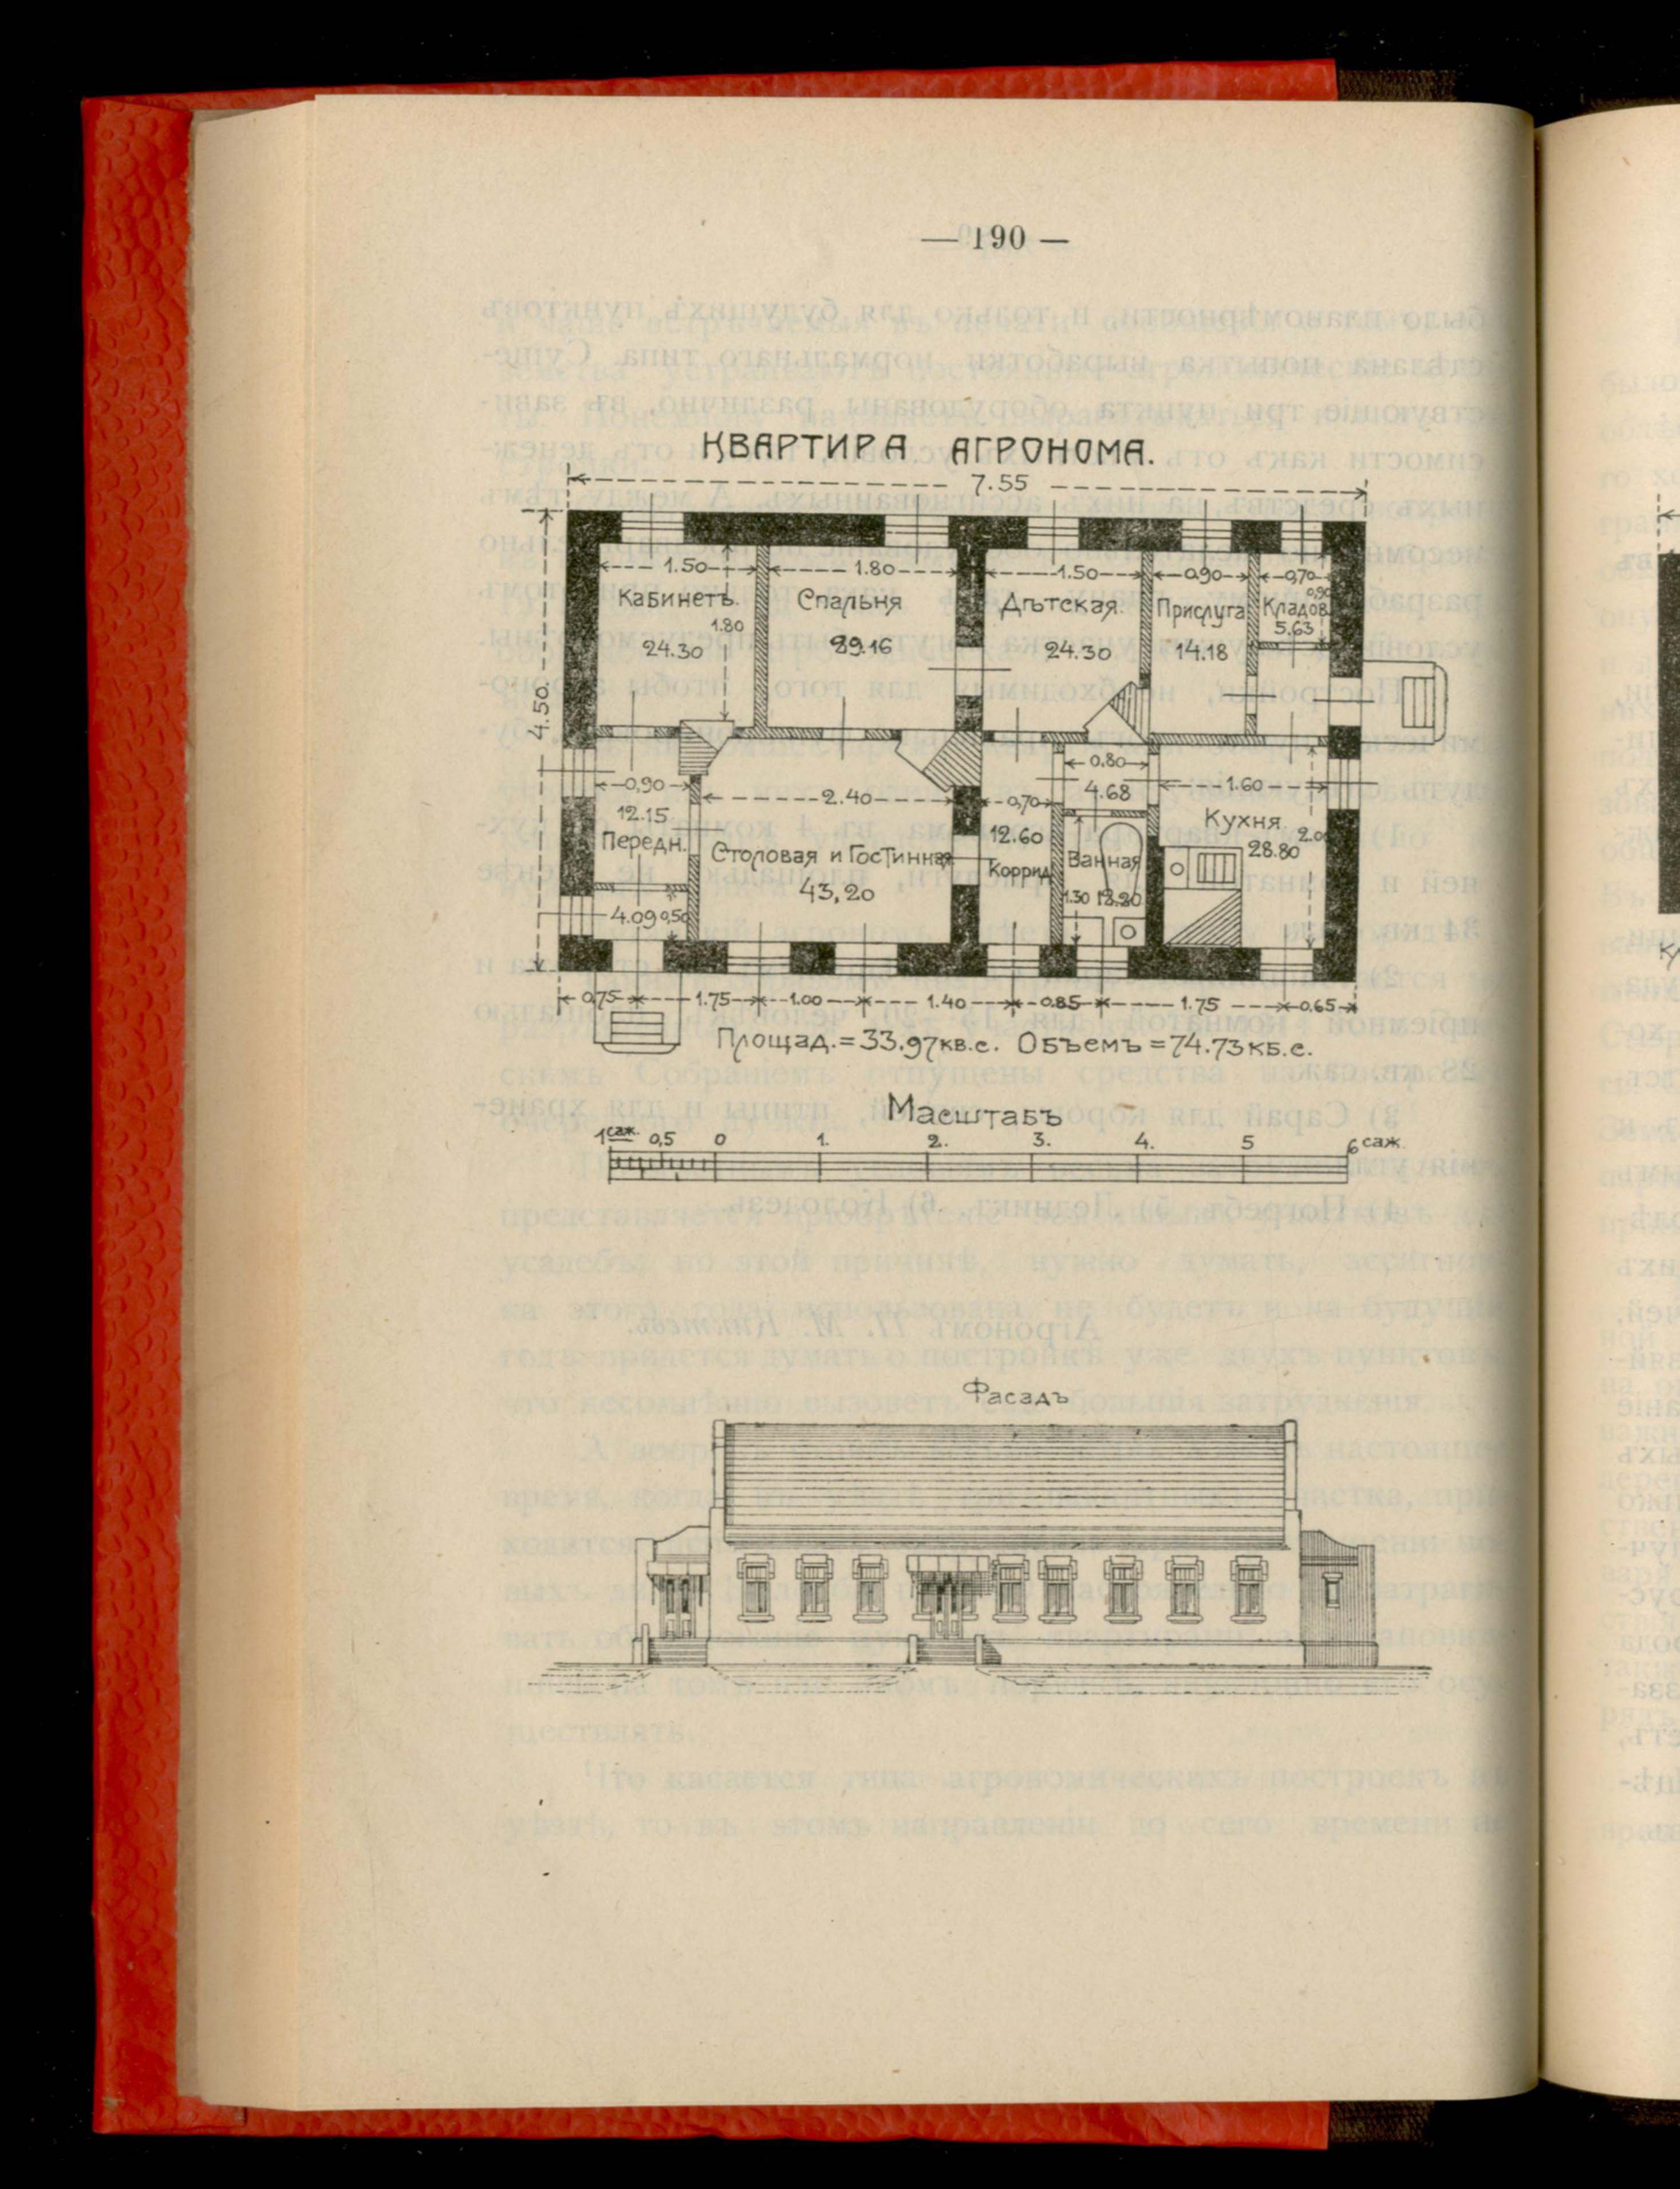 — 190 —
КВАРТИРА АГРОНОМА.
7.55
4.50.
1.50 1.80 1.50 0,90 0,70
0,90
Кабинетъ. Спальня Дѣтская. Прислуга Кладов.
1.80 5.63
24.30 29.16 24.30 14.18
0,90 2.40 0,70 0.80 1.60
4.68
12.15 12.60 Кухня 2.00
Передн. Столовая и Гостинная Коррид. Ванная 28.80
43,20
4.09 0,50 1.30
0,75 1.75 1.00 1.40 0.85 1.75 0.65
Площад.=33.97кв.с. Объемъ=74.73кб.с.
Масштабъ
1саж. 0,5 0 1. 2. 3. 4. 5 6 саж.
Фасадъ